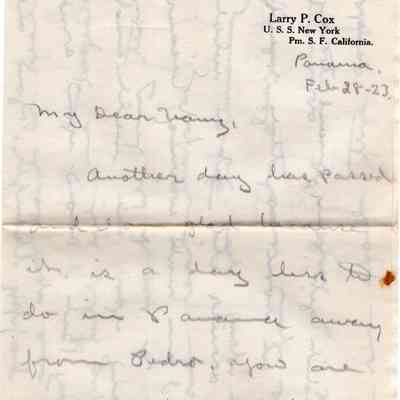 Larry P. Cox
U. S. S. New York
Pm. S. F. California.
Panama,
Feb 28-23.
My Dear Nancy,
Another day has passed
glad because
it is a day less to
do in Panama away
from Pedro, you are